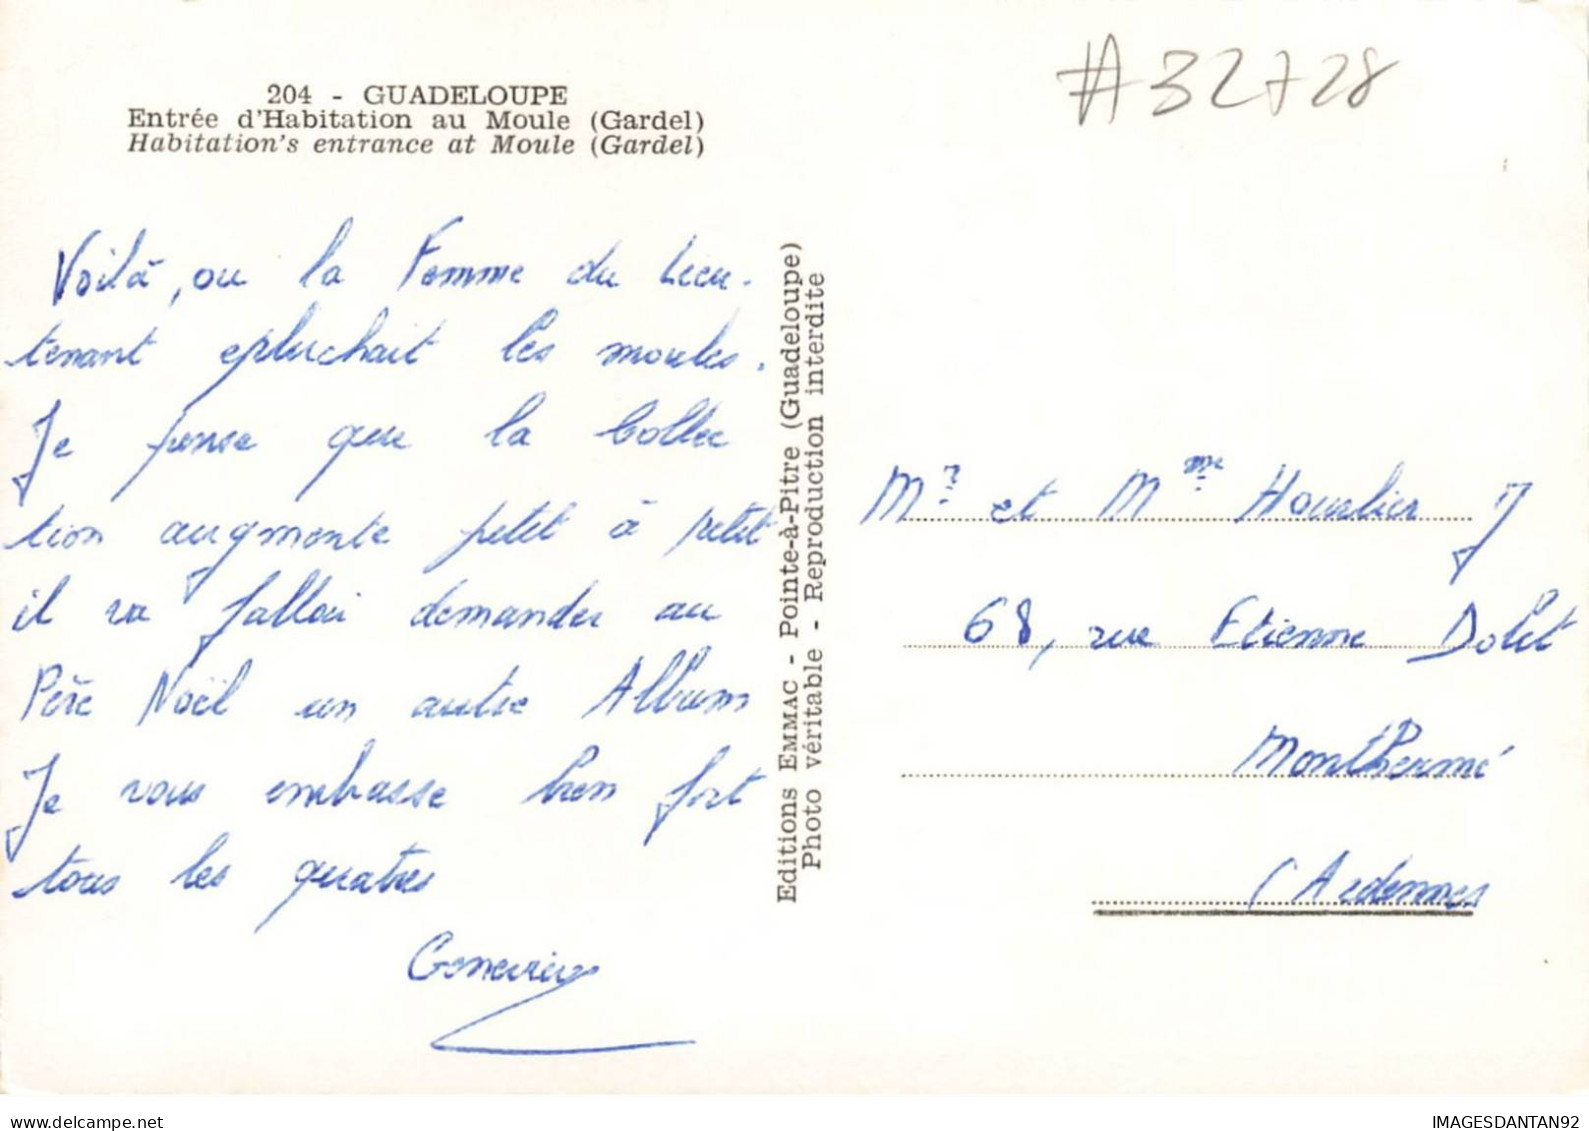 204 - GUADELOUPE
Entrée d'Habitation au Moule (Gardel)
Habitation's entrance at Moule (Gardel)
#32728
Voilà, ou la Femme du Lieu-
tenant epluchait les moules.
Je pense que la Collec
tion augmente petit à petit
il va falloir demander au
Père Noël un autre Album
Je vous embrasse bien fort
tous les quatres
Geneviève
Editions EMMAC - Pointe-à-Pitre (Guadeloupe)
Photo véritable - Reproduction interdite
Mr et Mme Hourlier J
68, rue Etienne Dolet
Monthermé
(Ardennes
delcampe.net
IMAGESDANTAN92